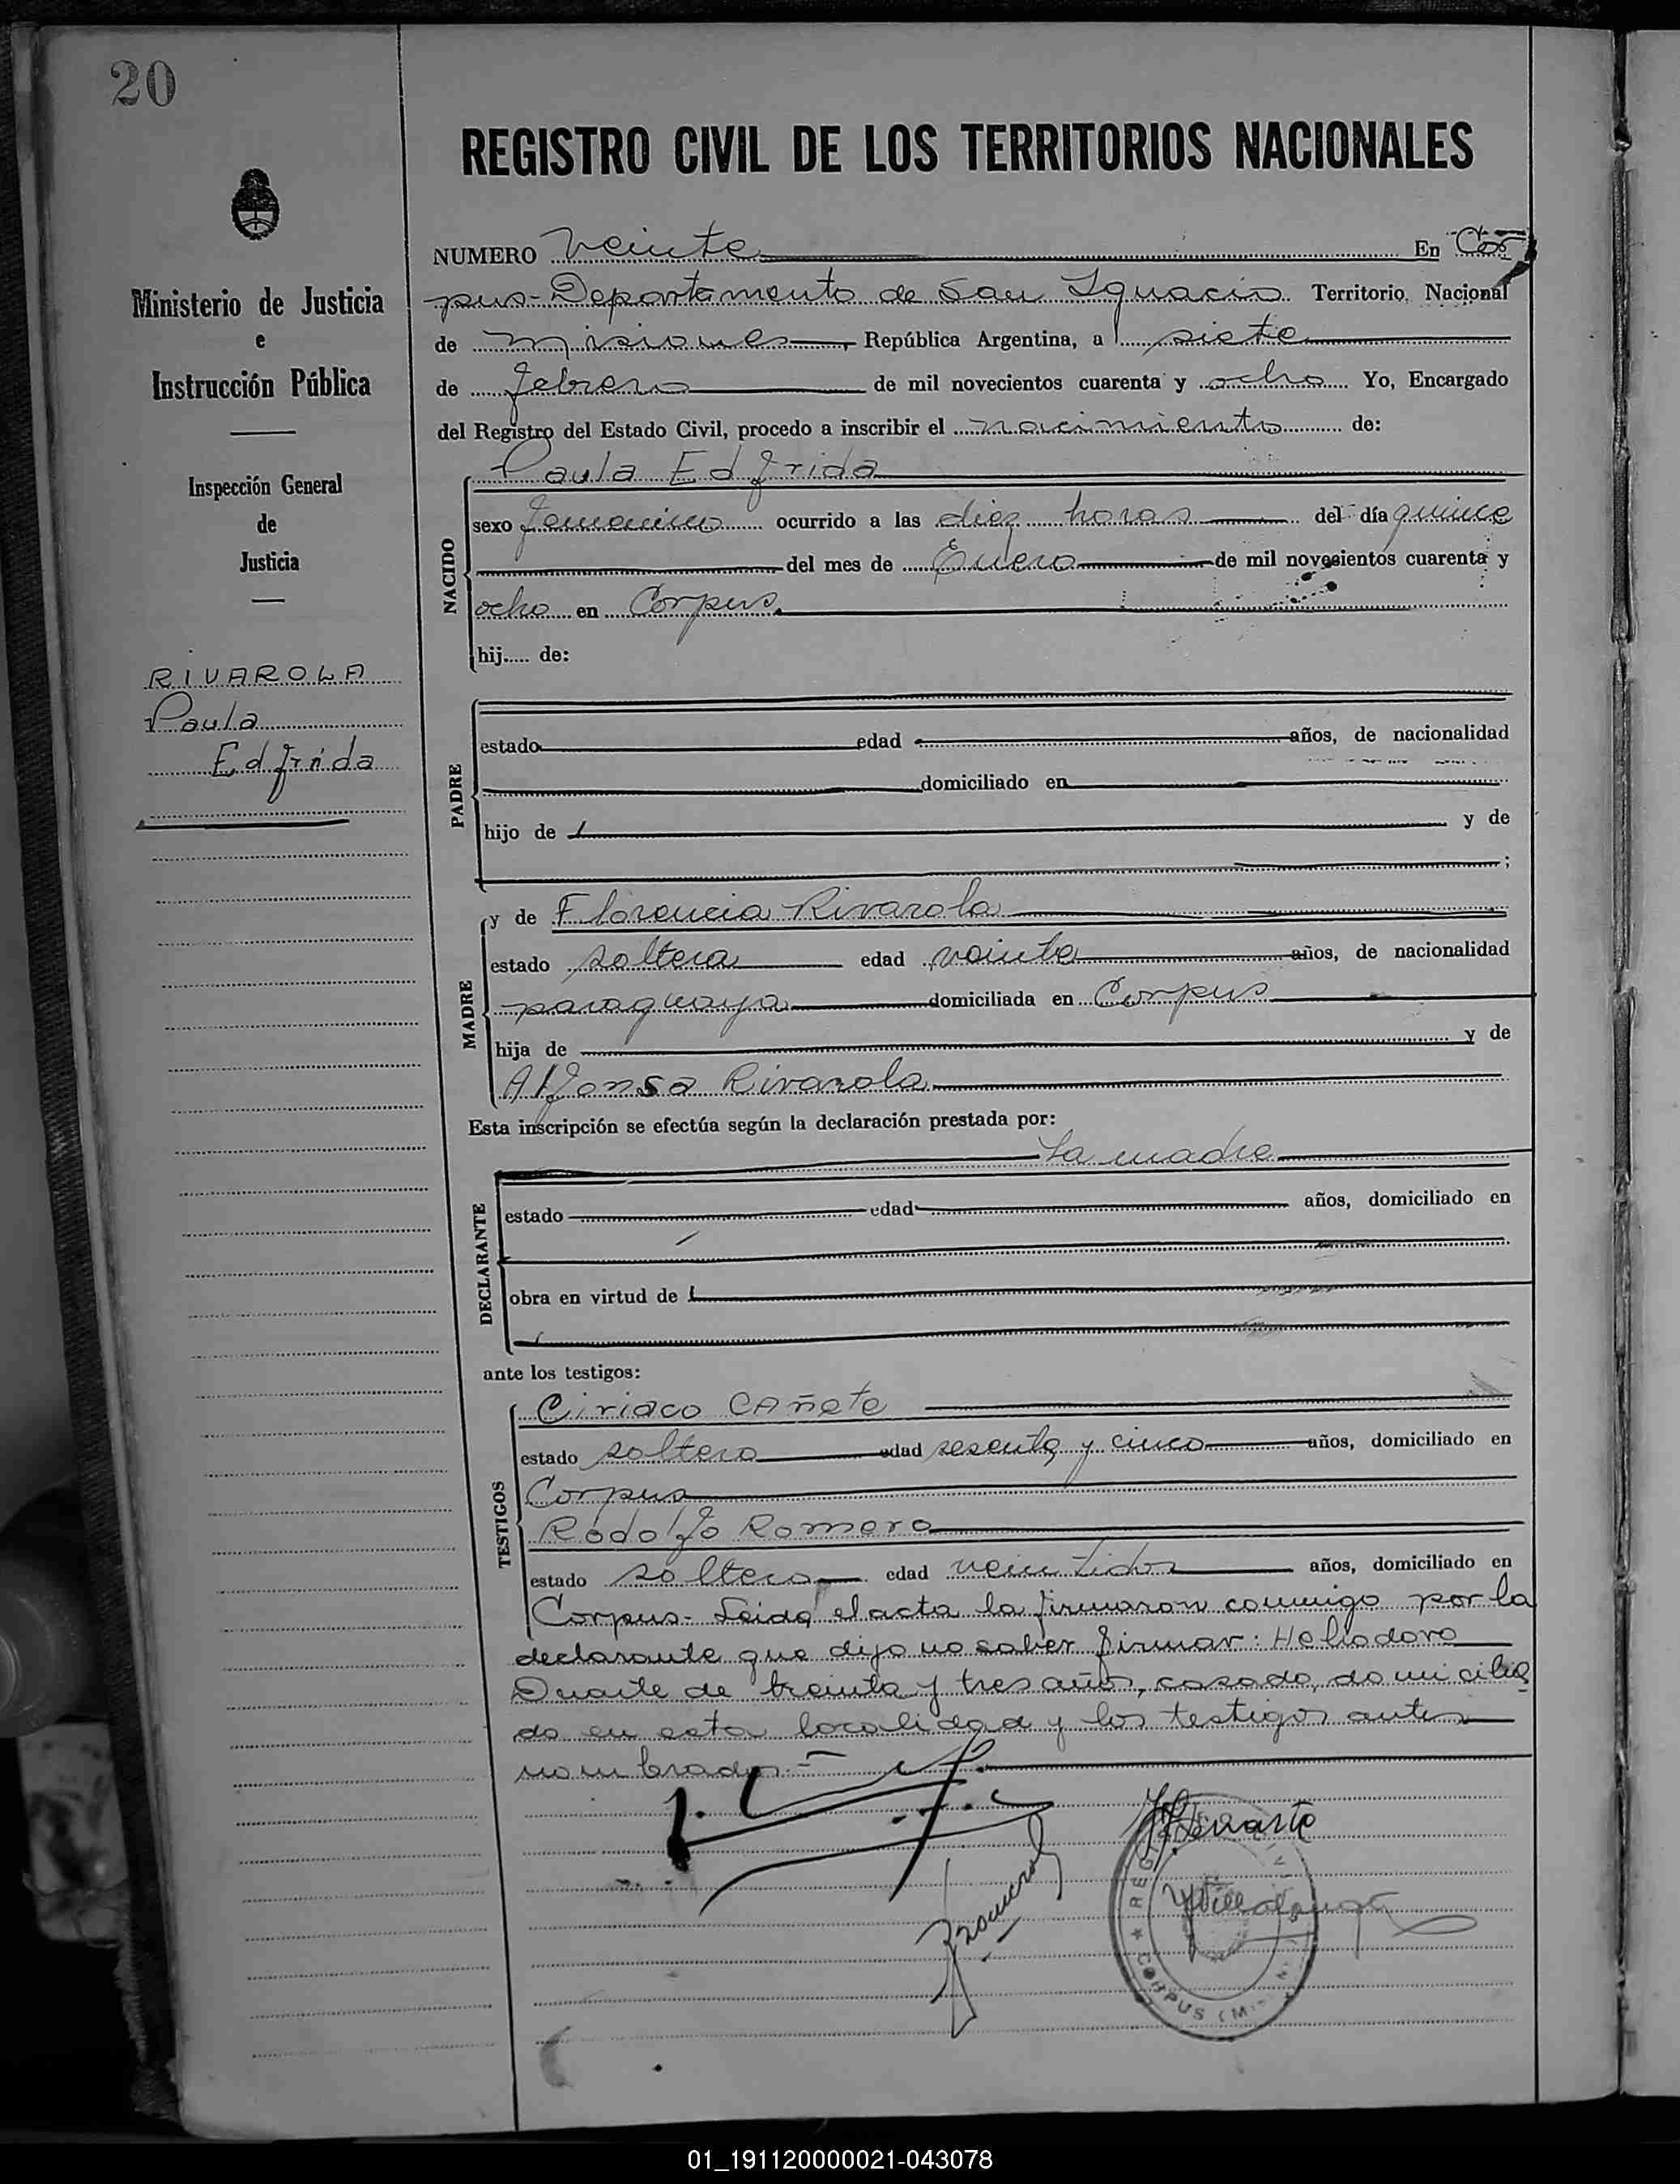 20
REGISTRO CIVIL DE LOS TERRITORIOS NACIONALES
Ministerio de Justicia
e
Instrucción Pública
Inspección General
de
Justicia
RIVAROLA
Paula
Edfrida
NUMERO veinte En Cor
pus - Departamento de San Ignacio Territorio Nacional
de Misiones, República Argentina, a siete
de febrero de mil novecientos cuarenta y ocho Yo, Encargado
del Registro del Estado Civil, procedo a inscribir el nacimiento de:
NACIDO
Paula Edfrida
sexo femenino ocurrido a las diez horas del día quince
del mes de Enero de mil novecientos cuarenta y
ocho en Corpus
hij..... de:
PADRE
estado edad años, de nacionalidad
domiciliado en
hijo de y de
;
MADRE
y de Florencia Rivarola
estado soltera edad veinte años, de nacionalidad
paraguaya domiciliada en Corpus
hija de y de
Alfonsa Rivarola
Esta inscripción se efectúa según la declaración prestada por:
La madre
DECLARANTE
estado edad años, domiciliado en
obra en virtud de
ante los testigos:
TESTIGOS
Ciriaco Cañete
estado soltero edad sesenta y cinco años, domiciliado en
Corpus
Rodolfo Romero
estado soltero edad veintidos años, domiciliado en
Corpus - Leida el acta la firmaron conmigo por la
declarante que dijo no saber firmar: Heliodoro
Duarte de treinta y tres años, casado, domicilia
do en esta localidad y los testigos antes
nombrados.-
HDuarte
RRomero
REGI
CORPUS (M
01_191120000021-043078